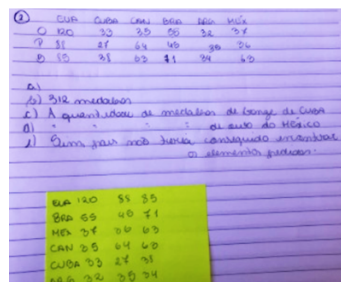 ②
EUA CUBA CAN BRA ARG MÉX
O 120 33 35 55 32 37
P 85 27 64 40 35 36
B 85 38 63 71 34 63
a)
b) 312 medalhas
c) A quantidade de medalhas de bronze de Cuba
d) " " " " de ouro do México
e) Sim, pois não teria conseguido encontrar
os elementos pedidos.
EUA 120 85 85
BRA 55 40 71
MÉX 37 36 63
CAN 35 64 63
CUBA 33 27 38
ARG 32 35 34